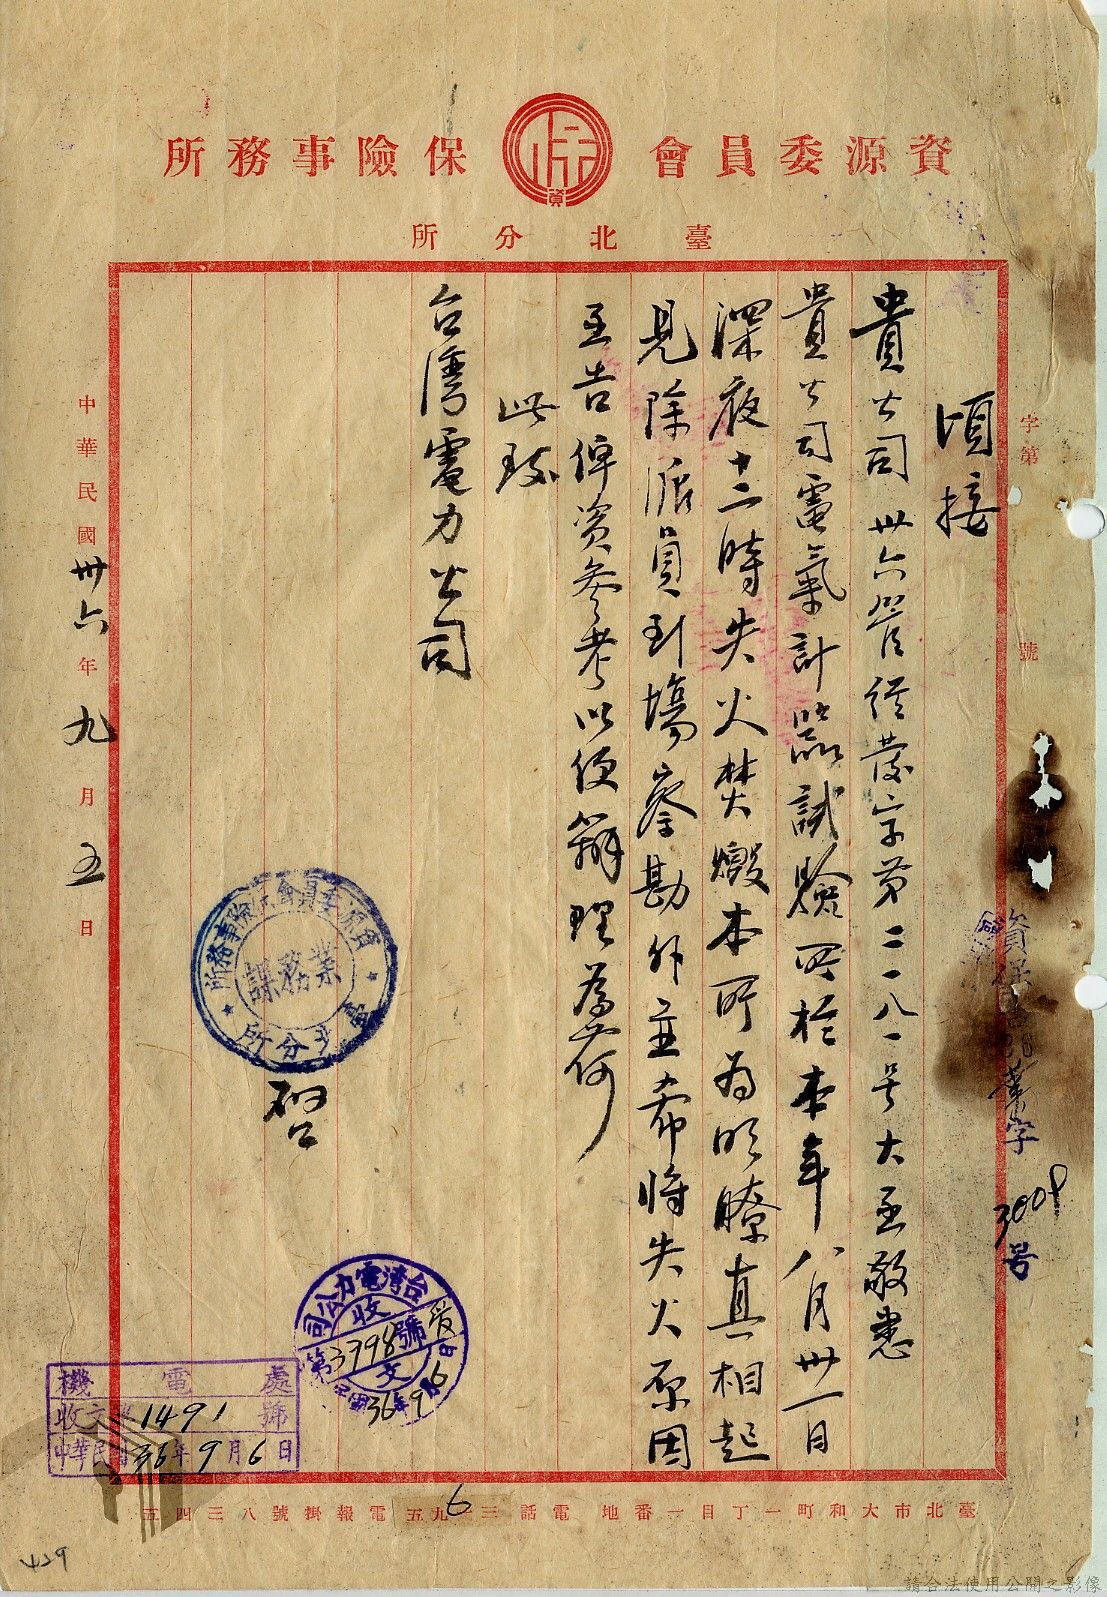 資源委員會 保險事務所
資
臺北分所
字第　號
資保
業字
3009号
頃接
貴公司卅六管経發字第二一八一号大函敬悉
貴公司電氣計器試驗所於本年八月卅一日
深夜十二時失火焚燬本所為明瞭真相起
見除派員到場察勘外並希將失火原因
函告俾資參考以便辦理為荷
此致
台灣電力公司
資源委員會保險事務所
業務課
分所
啓
中華民國卅六年九月五日
台灣電力公司
收
第3798號
文
36年9月6日
機電處
收文 1491號
中華民國36年9月6日
臺北市大和町一丁目一番地 電話三 九五 電報掛號八三四五
6
429
請合法使用公開之影像